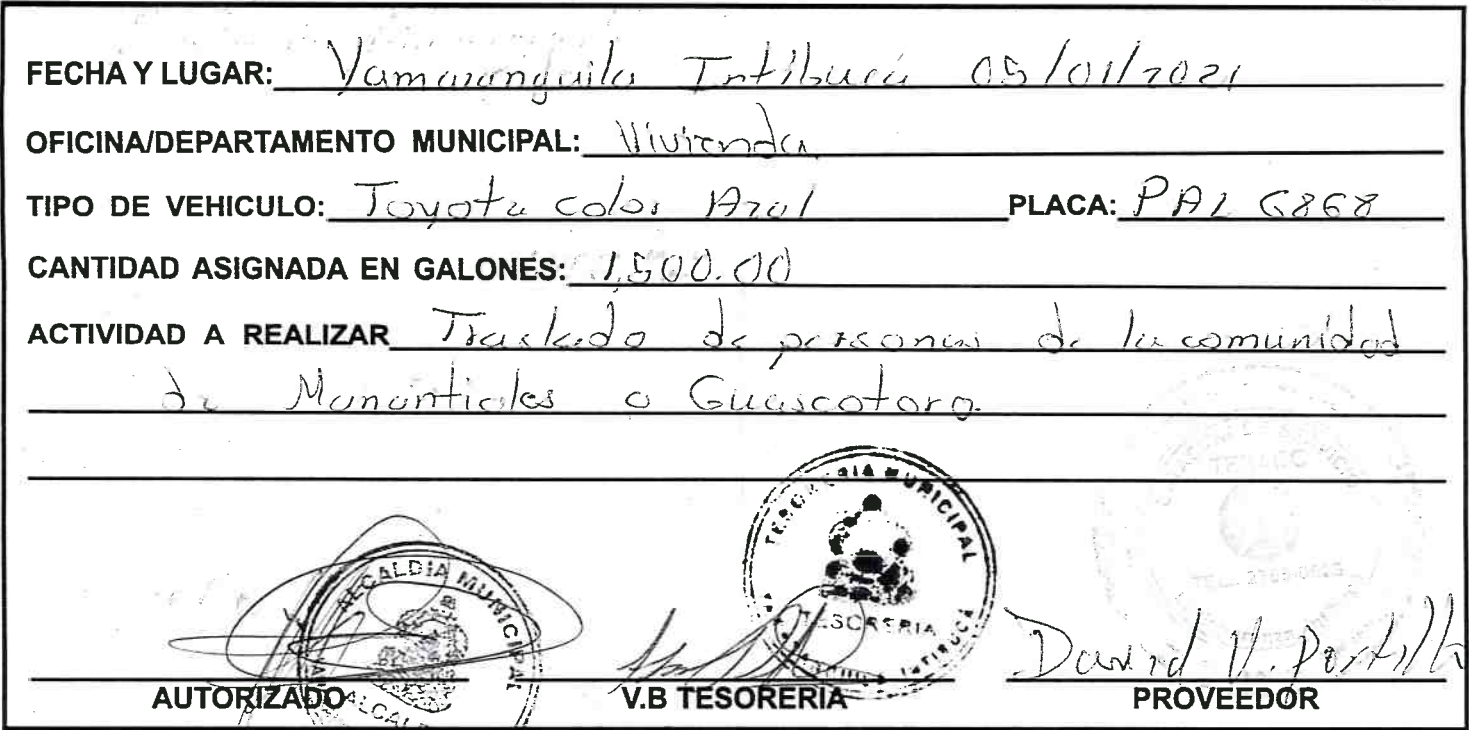 FECHA Y LUGAR: Yamaranguila Intibucá 05/01/2021
OFICINA/DEPARTAMENTO MUNICIPAL: Vivienda
TIPO DE VEHICULO: Toyota color Azul PLACA: PAL 6868
CANTIDAD ASIGNADA EN GALONES: 1,500.00
ACTIVIDAD A REALIZAR Traslado de personas de la comunidad
de Manantiales a Guascotoro.
TESORERIA MUNICIPAL
TESORERIA
INTIBUCA
ALCALDIA MUNICIPAL
David V. Portillo
AUTORIZADO V.B TESORERIA PROVEEDOR